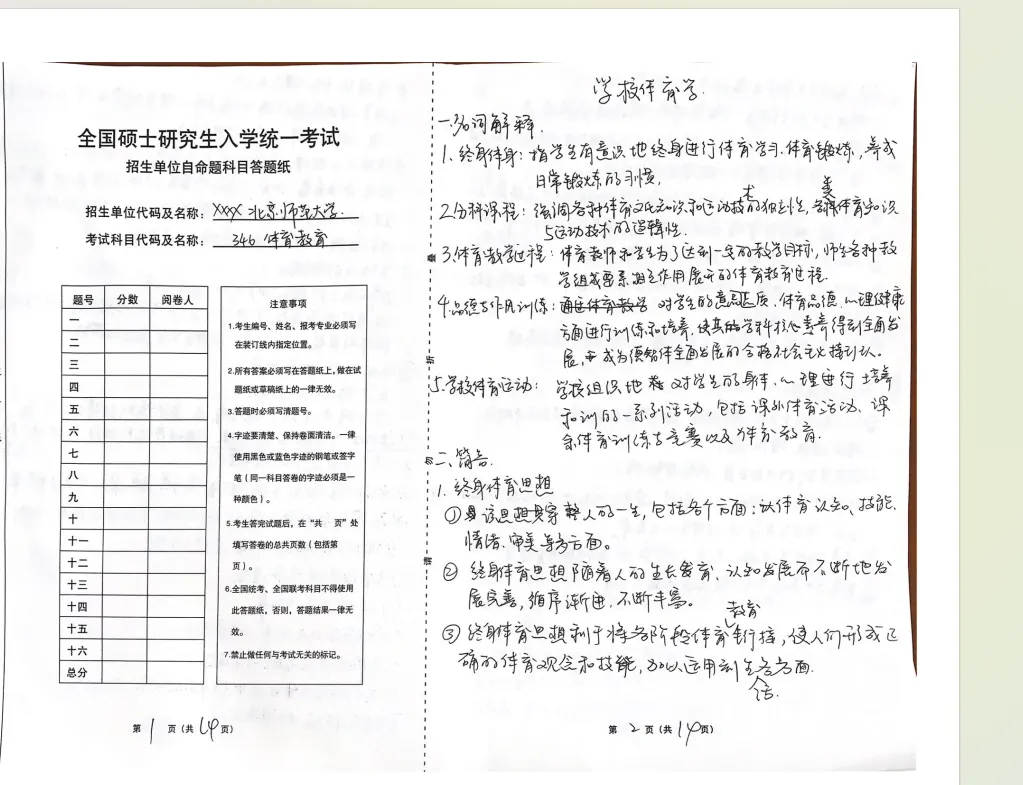 全国硕士研究生入学统一考试
招生单位自命题科目答题纸
招生单位代码及名称：XXXX 北京师范大学.
考试科目代码及名称：346 体育教育
题号 分数 阅卷人
一
二
三
四
五
六
七
八
九
十
十一
十二
十三
十四
十五
十六
总分
注意事项
1.考生编号、姓名、报考专业必须写
在装订线内指定位置。
2.所有答案必须写在答题纸上，做在试
题纸或草稿纸上的一律无效。
3.答题时必须写清题号。
4.字迹要清楚、保持卷面清洁。一律
使用黑色或蓝色字迹的钢笔或签字
笔（同一科目答卷的字迹必须是一
种颜色）。
5.考生答完试题后，在“共 页”处
填写答卷的总共页数（包括第
页）。
6.全国统考、全国联考科目不得使用
此答题纸，否则，答题结果一律无
效。
7.禁止做任何与考试无关的标记。
第 1 页（共 14 页）
学校体育学.
一.名词解释.
1. 终身体育：指学生有意识地终身进行体育学习.体育锻炼，养成
日常锻炼的习惯.
2.分科课程：强调各种体育文化知识和运动技术的独立性，体育知识
与运动技术的逻辑性.
3.体育教学过程：体育教师和学生为了达到一定的教学目标，师生各种教
学组成要素相互作用展开的体育教育过程.
4.品德与作风训练：通过体育教学 对学生的意志品质、体育品德、心理健康
方面进行训练和培养，使其的学科核心素养得到全面发
展，成为德智体全面发展的合格社会主义接班人。
5.学校体育运动：学校组织地 对学生的身体、心理进行培养
和训的一系列活动，包括课外体育活动、课
余体育训练与竞赛以及体育教育.
二.简答.
1. 终身体育思想
① 该思想贯穿整人的一生，包括各个方面：认体育认知、技能、
情绪、审美等多方面。
② 终身体育思想随着人的生长发育、认知发展而不断地发
展完善，循序渐进，不断丰富。
③ 终身体育思想利于将各阶段体育教育衔接，使人们形成正
确的体育观念和技能，加以运用到生活方面.
第 2 页（共 14 页）